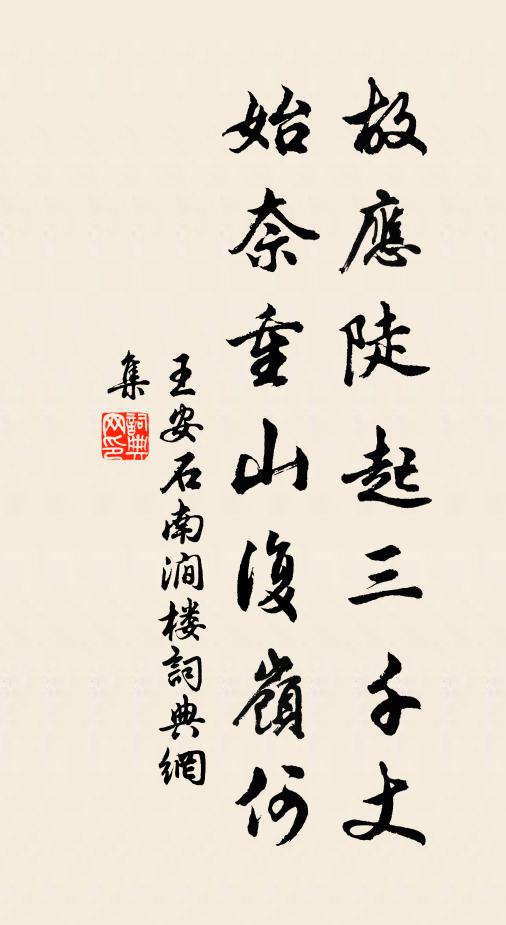 故應陡起三千丈
始奈重山復嶺何
王安石南澗楼詞典網
集
詞典
网印